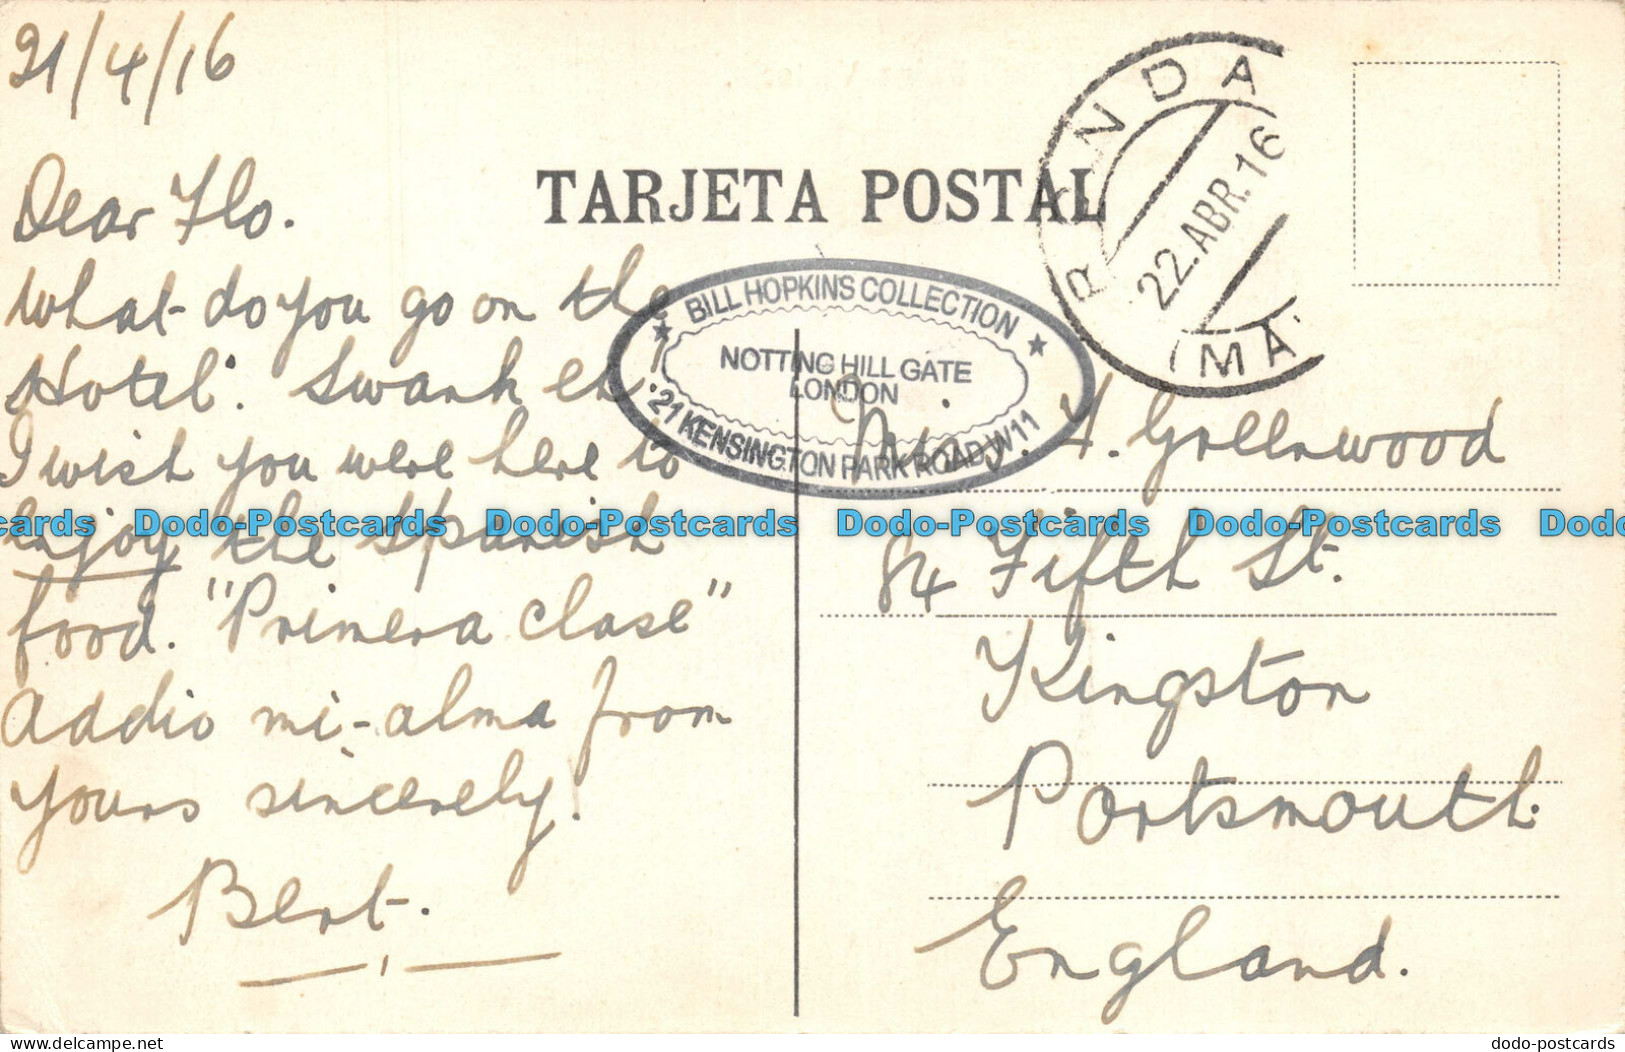 21/4/16
Dear Flo.
What do you go on the
Hotel. Swank eh!
I wish you were here to
enjoy the Spanish
food. "Primera clase"
Addio mi-alma from
yours sincerely.
Bert.
TARJETA POSTAL
RONDA
22.ABR.16
(MA
BILL HOPKINS COLLECTION
NOTTING HILL GATE
LONDON
21 KENSINGTON PARK ROAD W11
Greenwood
84 Fifth St.
Kingston
Portsmouth.
England.
cards Dodo-Postcards Dodo-Postcards Dodo-Postcards Dodo-Postcards Dodo
www.delcampe.net
dodo-postcards